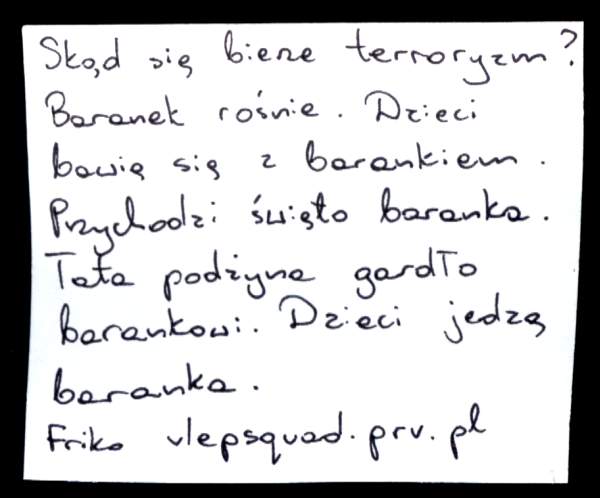 Skąd się bierze terroryzm?
Baranek rośnie. Dzieci
bawią się z barankiem.
Przychodzi święto baranka.
Tata podżyna gardło
barankowi. Dzieci jedzą
baranka.
Friko vlepsquad.prv.pl